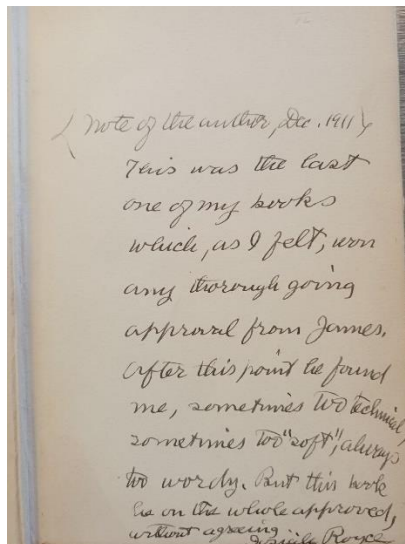 (Note of the author, Dec. 1911)
This was the last
one of my books
which, as I felt, won
any thorough going
approval from James.
After this point he found
me, sometimes too technical,
sometimes too "soft", always
too wordy. But this book
he on the whole approved,
without agreeing
Josiah Royce